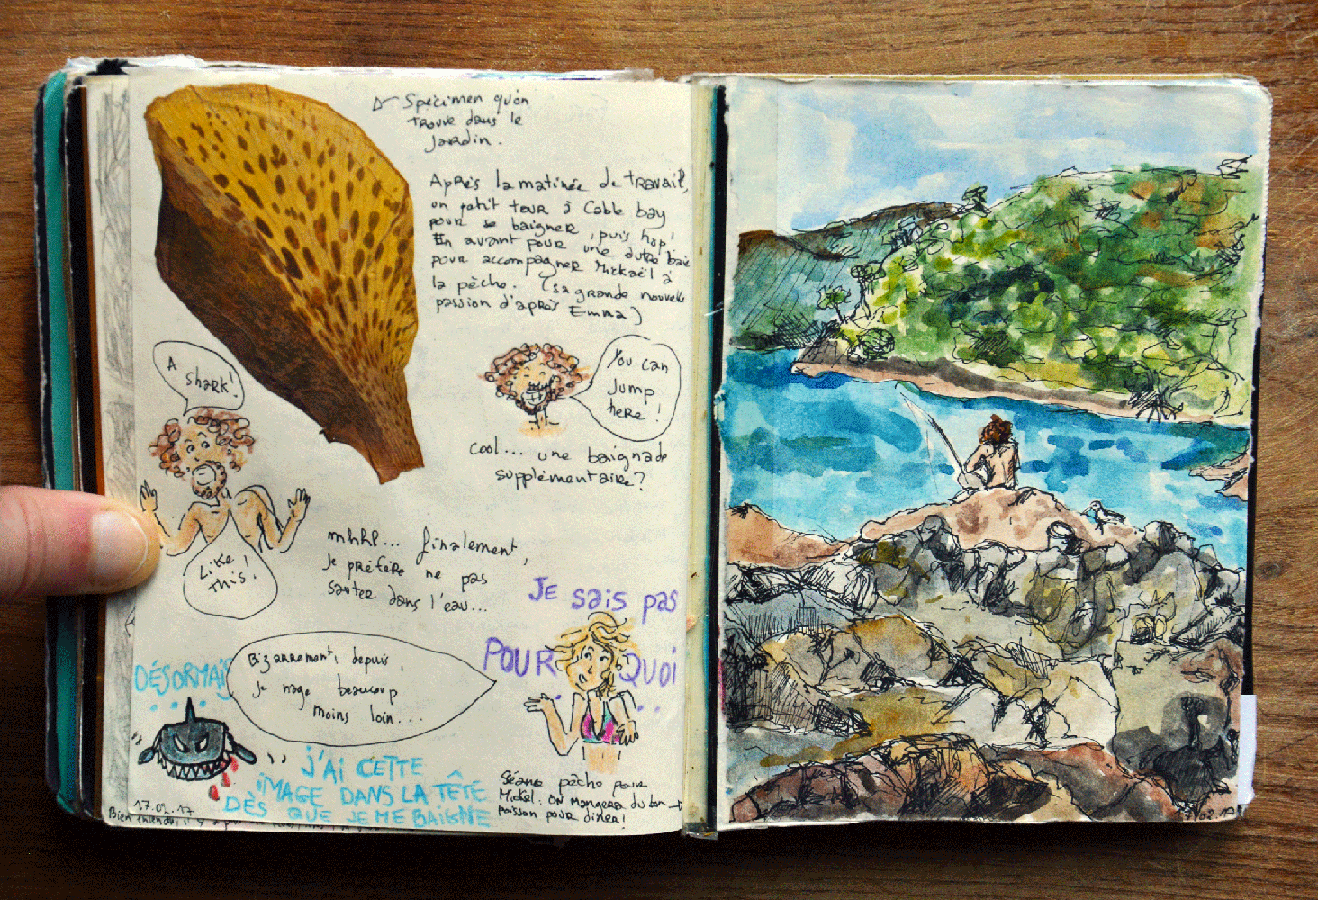 Spécimen qu'on
trouve dans le
jardin.
Après la matinée de travail,
un petit tour à Cable bay
pour se baigner, puis hop!
En avant pour une autre baie
pour accompagner Mickaël à
la pêche. (sa grande nouvelle
passion d'après Emma)
A
shark!
You can
Jump
here!
Cool... une baignade
supplémentaire?
Like
this!
mhhh... finalement,
je préfère ne pas
sauter dans l'eau...
JE sais pas
POURQUOI
...
Bizarrement, depuis
je nage beaucoup
moins loin...
DÉSORMAIS
...
J'AI CETTE
IMAGE DANS LA TÊTE
DÈS QUE JE ME BAIGNE
Séance pêche pour
Mickel. On mangera du bon
poisson pour dîner!
17.02.17
Bien entendu, il